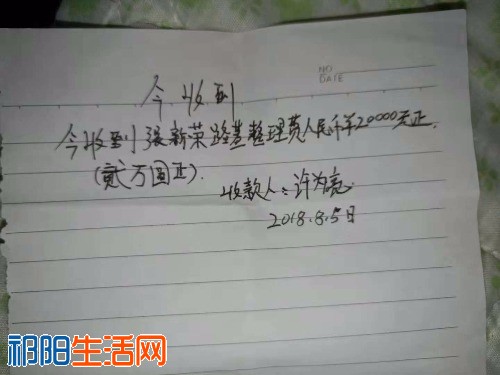 NO
DATE
今收到
今收到张新荣路基整理费人民币羊20000元正.
(贰万圆正).
收款人:许为亮.
2018.8.5日
祁阳生活网